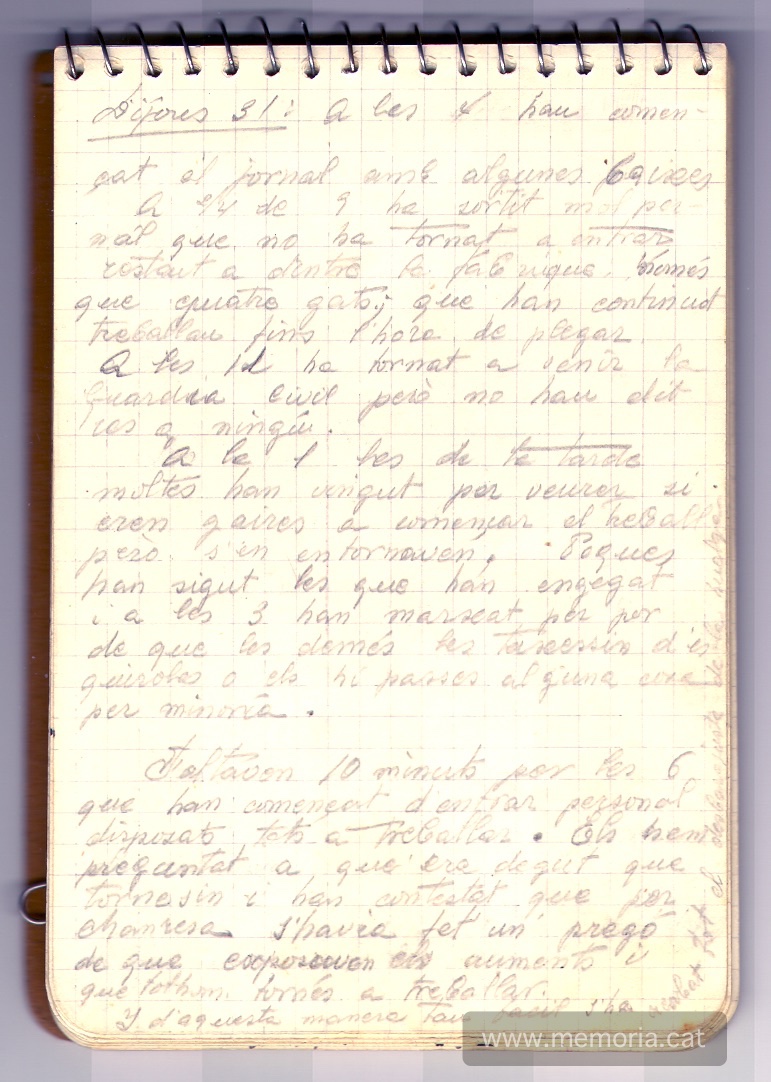 Dijous 31: A les 4 han comen-
çat el jornal amb algunes baixes
A 1/4 de 9 ha sortit mol per-
nal que no ha tornat a entrar
restant a dintre la fabrique. Només
que quatre gats; que han continuat
treballan fins l'hora de plegar.
A les 12 ha tornat a venir la
Guardia Civil però no han dit
res a ningú.
A la 1 les de la tarde
moltes han vingut per veurer si
eren gaires a començar el treball
però s'en entornaven. Poques
han sigut les que han engegat
i a les 3 han marxat per por
de que les demés les tatxessin d'es
quiroles o els hi passes alguna cosa
per minoria.
Faltaven 10 minuts per les 6
que han començat d'entrar personal
disposats tots a treballar. Els hem
preguntat a que era degut que
tornesin i han contestat que per
Manresa s'havia fet un pregó
de que exposaven els auments i
que tothom tornés a treballar.
I d'aquesta manera tan facil s'ha
acabat tot el desbarajuste de la huelga.
www.memoria.cat